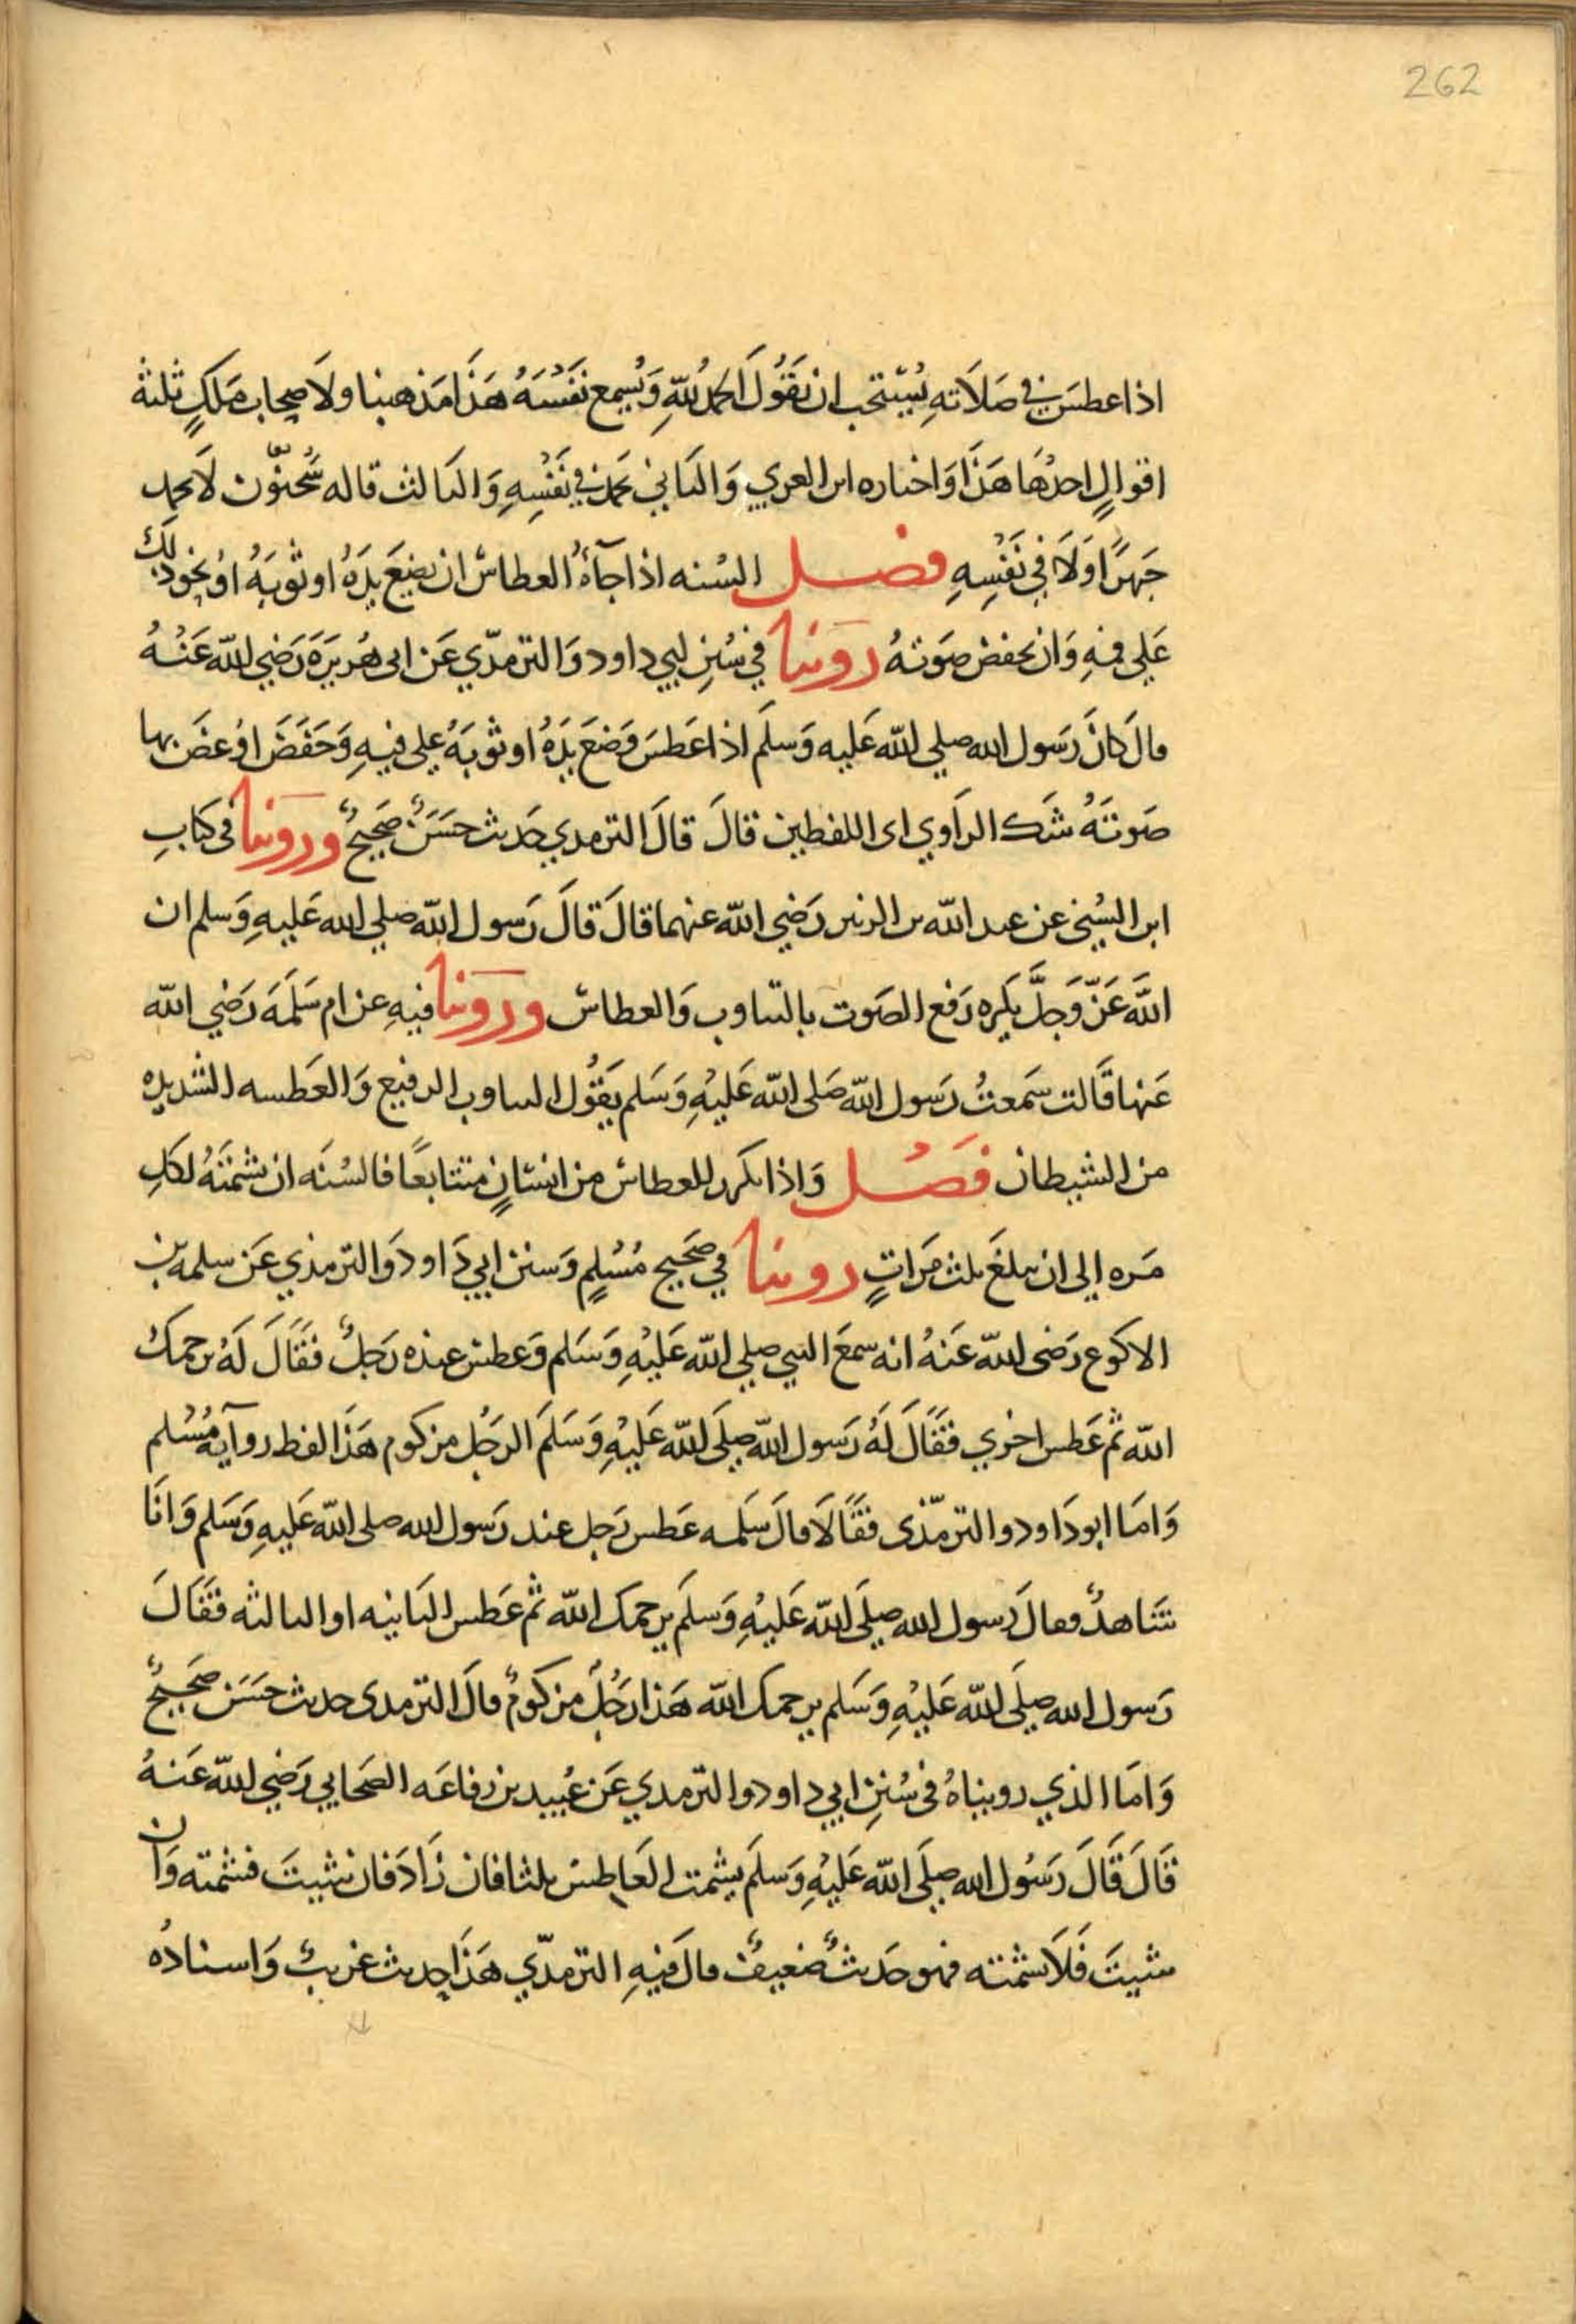 262
اذا عطس في صَلَاتهِ يُسْتحب ان يَقُولَ الحمدُ للهِ وَيُسمِع نَفْسَهُ هَذَا مَذهبنا ولاَصحاب مَلكٍ ثلثة
اقوالٍ احدُهَا هَذَا وَاختاره ابن العربي وَالثَاني يَحمد في نَفْسِهِ وَالثَالث قاله سُحنُون لاَ يحمد
جَهرًا وَلَا فِي نَفْسِهِ فصل السُنه اذا جآءَهُ العطاسُ ان يضعَ يدَهُ او ثوبَهُ اوْ نحو ذلك
عَلي فمِهِ وَان يخفض صَوتهُ روينا في سُنَنِ ابي داود وَالترمذي عَن ابى هُريرَةَ رَضِي اللهُ عَنْهُ
قال كَانَ رَسول الله صلي اللهُ عَليه وَسلَم اذا عَطسَ وَضعَ يدَهُ او ثوبَهُ علي فيهِ وَخَفَضَ اوْ غضَ بها
صَوتَهُ شَك الرَاوي اى اللفظين قالَ قالَ الترمدي حَديث حسَنٌ صَحِيحٌ وروَينا فى كتابِ
ابن السُني عن عبد الله بن الزبير رَضي الله عنهما قالَ قالَ رَسول الله صلي الله عَليهِ وَسلم ان
اللهَ عَزّ وَجلَّ يكره رَفع الصَوت بالتثاوب وَالعطاس وروَينا فيهِ عن ام سَلَمَة رَضي الله
عَنها قَالت سَمعتُ رَسول الله صَلى الله عَليْهِ وَسَلم يَقُول التثاوب الرفيع وَالعَطسه الشديده
من الشيطان فصل وَاذا تكرر للعطاس من انسَانٍ متتابعًا فالسُنَه ان يشمتَهُ لكلِ
مَره إلى ان يبلغَ ثلث مَراتٍ روينا في صَحِيح مُسْلمٍ وَسنن ابي دَاود وَالترمذي عَن سلمه بن
الاكوع رَضى اللهُ عَنهُ انه سمعَ النبي صلي اللهُ عَليْهِ وَسَلم وَعطس عنده رَجلٌ فقَالَ لَهُ يرحمكَ
الله ثم عَطس اخري فقَالَ لَهُ رَسول الله صلَى اللهُ عَليْهِ وَسَلمَ الرجُل مزكوم هَذَا لفظ روآية مُسْلم
وَامَا ابو دَاود والترمّذى فقَالَا قالَ سَلمه عَطس رَجل عند رَسول الله صلى الله عَليهِ وَسَلم وَانَا
شَاهدٌ فقالَ رَسول الله صلَى الله عَليْهِ وَسلَم يرحمك الله ثم عَطس الثَانيه او الثالثه فقَالَ
رَسول الله صلَى اللهُ عَليْهِ وَسَلم يرحمك الله هَذا رَجُلٌ مزكومٌ قالَ الترمدى حديث حسَن صَحِيحٌ
وَامَا الذي رويناهُ فى سُنَنِ ابي داود والترمدي عَن عُبيد بن رفاعَه الصَحابي رَضِي اللهُ عَنهُ
قَالَ قَالَ رَسُول الله صلَى الله عَليْهِ وَسلَم يشمت العَاطِسُ ثلثا فان زَادَ فان شيتَ فشمته وَان
شيتَ فَلَا تشمته فهو حَديثٌ ضعيفٌ قالَ فِيهِ الترمذّي هَذَا حديث غريبٌ وَاسنادُه